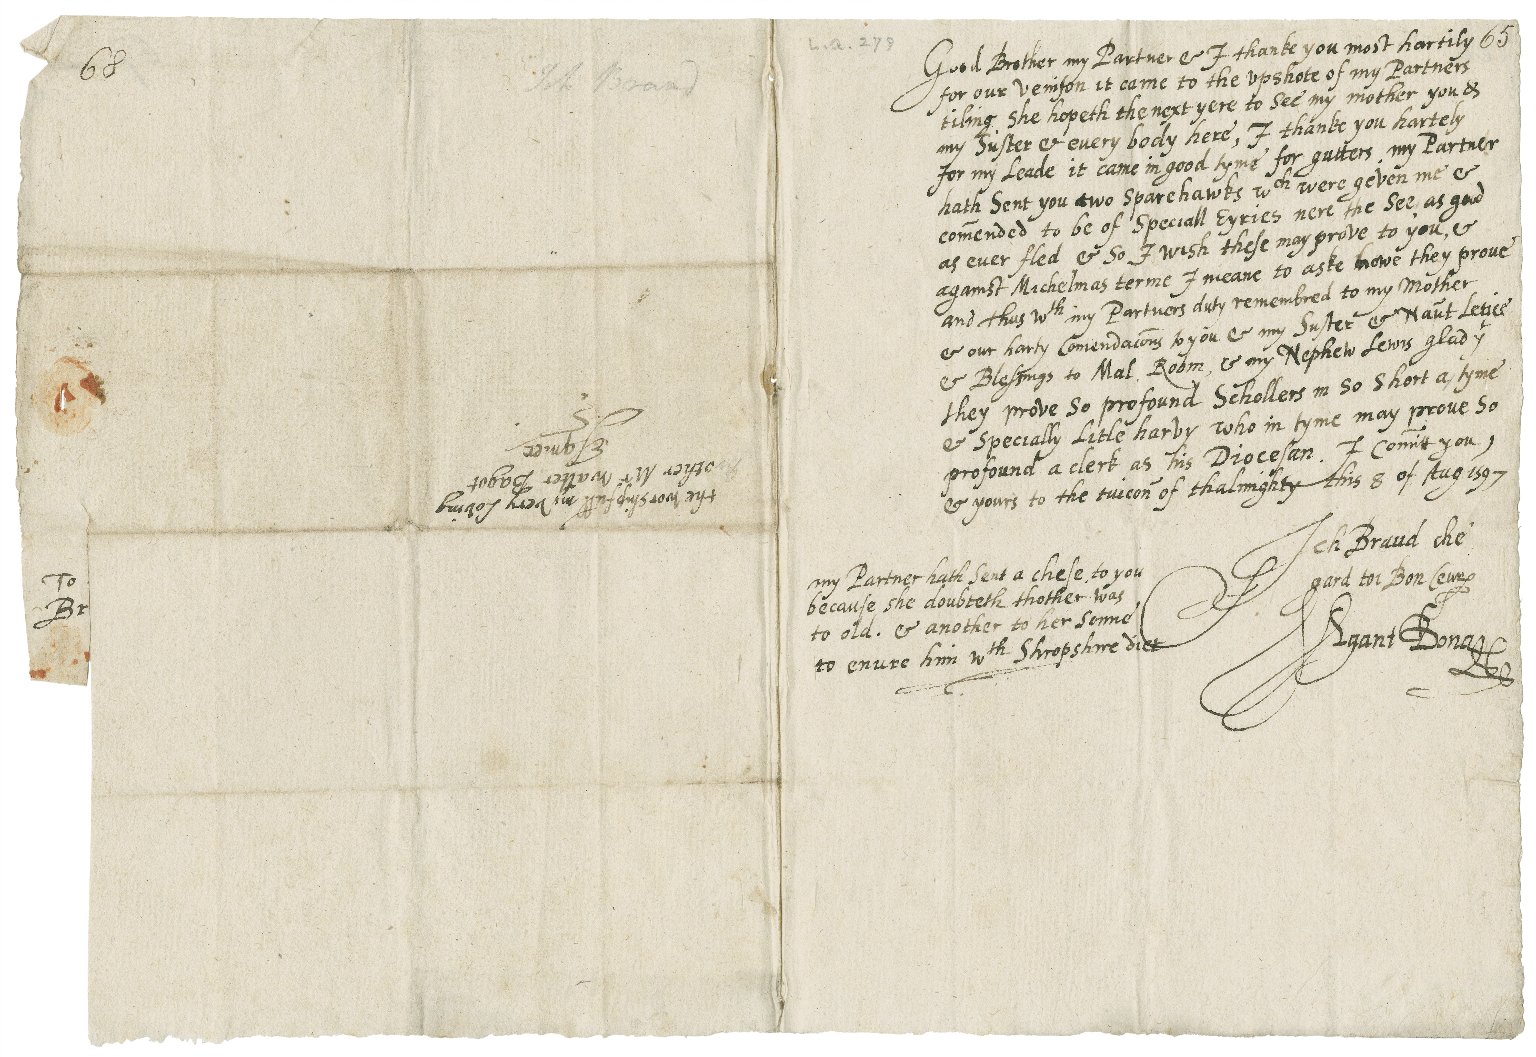 68
L.a. 279
65
Good Brother my Partner & I thanke you most hartily
for our venison it came to the vpshote of my Partners
tiling she hopeth the next yere to see my mother you &
my Suster & euery body here, I thanke you hartely
for my Leade it came in good tyme for gutters. my Partner
hath Sent you two Sparehawks wch were geven me &
comended to be of Speciall Eyries nere the See, as good
as euer fled & So I wish these may prove to you, &
against Michelmas terme I meane to aske howe they proue
and thus wth my Partners duty remembred to my Mother
& our harty Comendacons to you & my Suster & Naut Letice
& Blessings to Mal. Robin, & my Nephew Lewis glad yt
they prove So profound Schollers in So Short a tyme
& Specially Litle harvy who in tyme may prove So
profound a clerk as his Diocesan. I Comitt you
& yours to the tuicon of thalmighty this 8 of Aug 1597
Ich Braud che
gard toi Bon Ceur
Agant Bona
my Partner hath Sent a chese to you
because she doubteth thother was
to old. & another to her Sonne
to enure him wth Shropshire diet
To
Br
the worshipfull my very Loving
other Mr Walter Bagot
Esquier